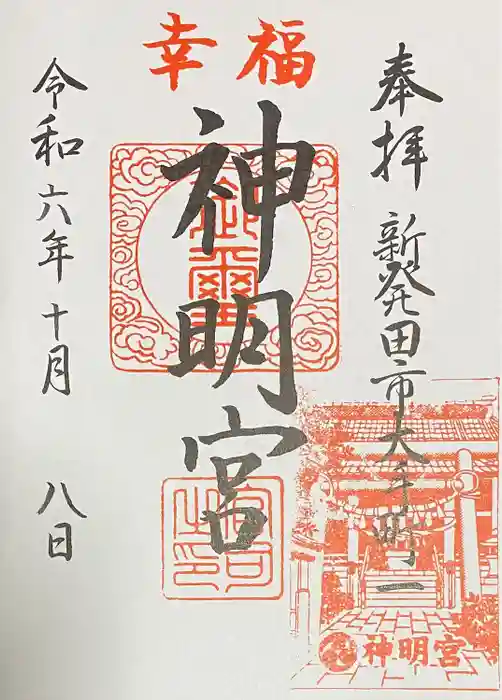 幸福
奉拝
新発田市大手町一
神明宮
令和六年十月
八日
神明宮